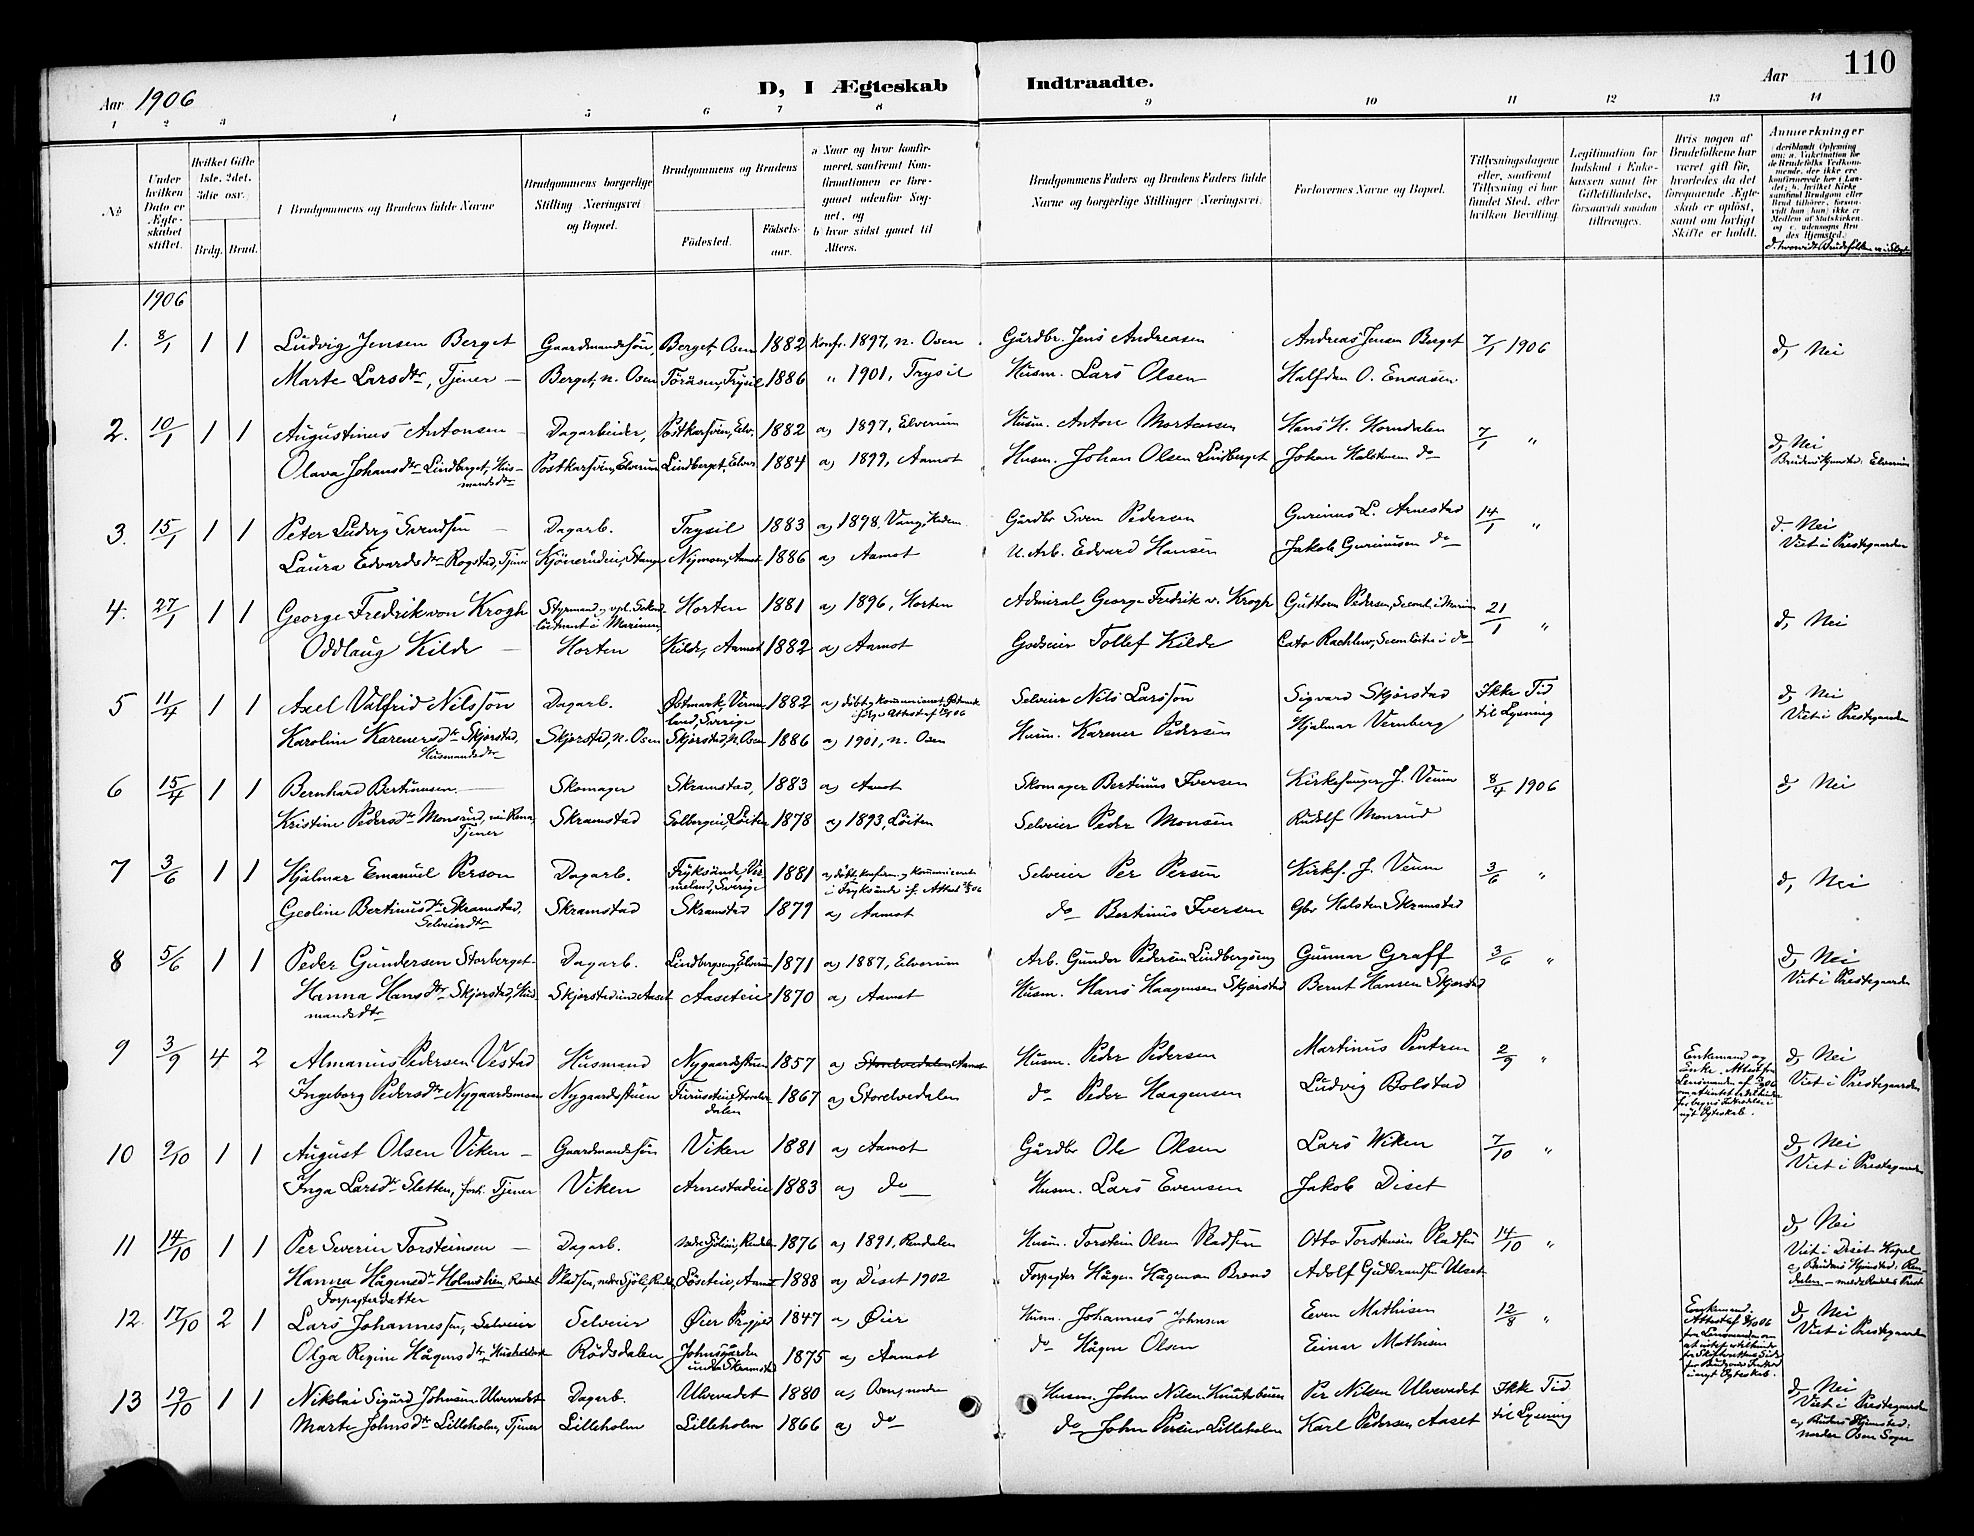 110
Aar 1906
D, I Ægteskab Indtraadte.
Aar
1 2 3 4 5 6 7 8 9 10 11 12 13 14
No
Under hvilken Dato er Ægteskabet stiftet.
Hvilket Gifte 1ste. 2det. 3die osv.
Brdg. Brud.
I Brudgommens og Brudens fulde Navne
Brudgommens borgerlige Stilling (Næringsvei) og Bopæl.
Brudgommens og Brudens
Fødested. Fødselsaar.
a Naar og hvor konfirmeret, saafremt Konfirmationen er foregaaet udenfor Sognet, og
b hvor sidst gaaet til Alters.
Brudgommens Faders og Brudens Faders fulde Navne og borgerlige Stillinger (Næringsvei).
Forlovernes Navne og Bopæl.
Tillysningsdagene eller, saafremt Tillysning ei har fundet Sted, efter hvilken Bevilling.
Legitimation for Indskud i Enkekassen samt for Giftetilladelse, forsaavidt saadan tiltrænges.
Hvis nogen af Brudefolkene har været gift før, hvorledes da det foregaaende Ægteskab er opløst, samt om lovligt Skifte er holdt.
Anmerkninger
1906
1. 8/1 1 1 Ludvig Jensen Berget Gaardmandssøn, Berget, Osen 1882 Konf. 1897, n. Osen Gårdbr. Jens Andreasen Andreas Jensen Berget 7/1 1906 d, Nei
Marte Larsdtr, Tjener — Berget, n. Osen Töråsen, Trysil 1886 " 1901, Trysil Husm. Lars Olsen Halfdan O. Enaasen
2. 10/1 1 1 Augustinus Antonsen — Dagarbeider, Postkarsveen, Elv. 1882 a) 1897, Elverum Husm. Anton Mortensen Hans H. Horndalen 7/1 " d, Nei
Olava Johansdtr Lindberget, Husmandsdtr Postkarsveen, Elverum Lindberget, Elver. 1884 a) 1899, Aamot Husm. Johan Olsen Lindberget Johan Halstensen do Brudens Hjemsted: Elverum
3. 15/1 1 1 Peter Ludvig Svendsen — Dagarb. Trysil 1883 a) 1898, Vang, Hedem. Gårdbr Sven Pedersen Gurinius L. Arnestad 14/1 " d. Nei
Laura Edvardsdtr Rogstad, Tjener Kjönerudeie, Stange Nymoen, Aamot 1886 a) Aamot U. Arb. Edvard Hansen Jakob Guriniusen do Viet i Prestegaarden
4. 27/1 1 1 George Fredrik von Krogh Styrmand og vpl. Sekondlöitnant i Marinen, Horten 1881 a) 1896, Horten Admiral George Fredrik v. Krogh Guttorm Pedersen, Secondl. i Marin 21/1 " d, Nei
Oddlaug Kilde — Horten Kilde, Aamot 1882 a) Aamot Godseier Tollef Kilde Cato Rachlew, Seconlöitn i do
5 11/4 1 1 Axel Valfrid Nilsson Dagarb. Østmark, Vermeland, Sverige 1882 a) döbt, Selveier Nils Larsson Sigvard Skjørstad Ikke Tid til Lysning d, Nei
Karoline Karenersdtr Skjørstad, Husmandsdtr Skjørstad, n. Osen Skjørstad, n. Osen 1886 a) 1901, n. Osen Husm. Karener Pedersen Hjalmar Vernberg Viet i Prestegaarden
6 15/4 1 1 Bernhard Bertinussen — Skomager Skramstad, 1883 a) Aamot Skomager Bertinus Iversen Kirkesanger J. Veum 8/4 1906 d, Nei
Kristine Pedersdtr Monsrud, Tjener Skramstad Solbergeie, Löiten 1878 a) 1893, Löiten Selveier Peder Monsen Rudolf Monrud
7 3/6 1 1 Hjalmar Emanuel Person Dagarb. Fryksände, Vermeland, Sverige 1881 Selveier Per Persen Kirkes. J. Veum 3/6 " d, Nei
Geoline Bertinusdtr Skramstad, Selveierdtr Skramstad Skramstad 1879 a) Aamot do Bertinus Iversen Gbr Halsten Skramstad
8 5/6 1 1 Peder Gundersen Storberget Dagarb. Lindbergseng, Elverum 1871 a) 1887, Elverum Arb. Gunder Pedersen Lindbergseng Gunnar Graff 3/6 " d, Nei
Hanna Hansdtr Skjørstad, Husmandsdtr Skjørstad und. Aaset Aaseteie 1870 a) Aamot Husm. Hans Haagensen Skjørstad Bernt Hansen Skjørstad Viet i Prestegaarden
9 3/9 4 2 Almanus Pedersen Vestad Husmand Nygaardsstuen 1857 a) Storelvedalen Aamot Husm. Peder Pedersen Martinus Pentzen 2/9 " d, Nei
Ingeborg Pedersdtr Nygaardsmoen Nygaardsstuen Furuseteie, Storelvdalen 1867 a) Storelvedalen do Peder Haagensen Ludvig Bolstad Viet i Prestegaarden
10 9/10 1 1 August Olsen Viken — Gaardmandssøn Viken 1881 a) Aamot Gårdbr Ole Olsen Lars Wiken 7/10 " d, Nei
Inga Larsdtr Sletten, Tjener Viken Arnestadeie 1883 a) do Husm. Lars Evensen Jakob Diset Viet i Prestegaarden
11 14/10 1 1 Per Severin Torsteinsen — Dagarb. Rendalen 1876 a) 1891, Rendalen Husm. Torstein Olsen Pladsen Otto Torstensen Pladsen 14/10 " d, Nei
Hanna Hågensdtr Holmstien, Forpagterdatter Løseteie, Aamot 1888 a) Diset 1902 Forpagter Hågen Hågensen Brænd Adolf Gudbrandsen Ulset Viet i Diset Kapel
12. 17/10 2 1 Lars Johannessen, Selveier Selveier Øier Prgjeld 1847 a) Øier Husm. Johannes Johnsen Even Mathisen 12/8 " Enkemand. d, Nei
Olga Regine Hågensdtr, Rödsdalen Johnsgården under Skramstad 1875 a) Aamot do Hågen Olsen Einar Mathisen Viet i Prestegaarden
13 19/10 1 1 Nikolai Sigurd Johnsen Ulvevadet Dagarb. Ulvevadet 1880 a) Osen, nordre Husm. John Nilsen Knutsbuen Per Nilsen Ulvevadet Ikke Tid til Lysning d, Nei
Marte Johnsdtr Lilleholm, Tjener Lilleholm Lilleholm 1866 a) do do John Persen Lilleholm Karl Pedersen Aaset Viet i Prestegaarden